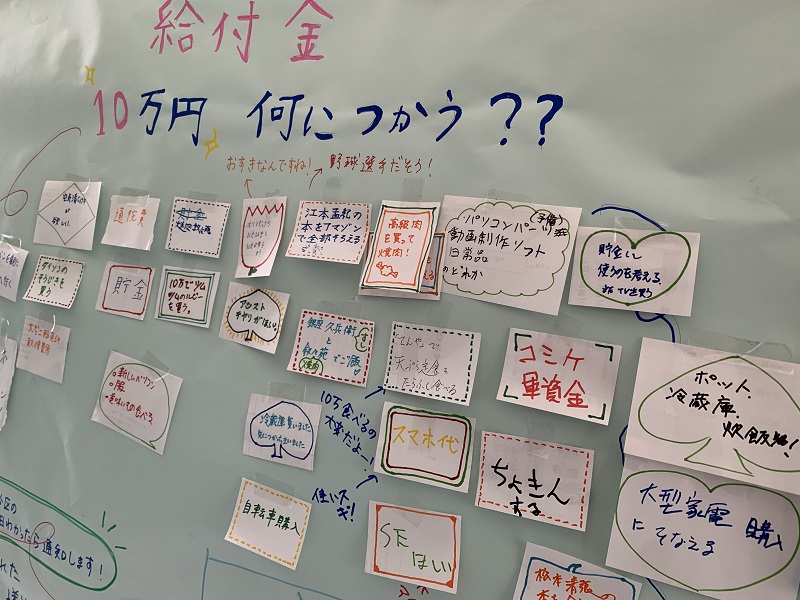 給付金
10万円 何につかう??
おすきなんですね!
野球選手だそう!
通信費
江本孟紀の
本をアマゾン
で全部そろえる
高級肉
を買って
焼肉!
パソコンパーツ(予備)
動画制作ソフト
日常品
のどれか
貯金し
使うのを考える。
ダイソンの
そうじきを
買う
貯金
10万でツム
ツムのルビー
を買う。
アシスト
チャリがほしい。
銀座 久兵衛 すし
と
叙々苑でご飯
焼肉
てんやで
天ぷら定食を
たらふく食べる
コミケ
軍資金
ポット、
冷蔵庫、
炊飯器!
新しいパソコン
服
冷蔵庫買いました
10万食べるの
大変だよー!
スマホ代
使いスギ!
ちょきん
する
大型家電 購入
にそなえる
自転車購入
SE
ほしい
わかったら通知します!